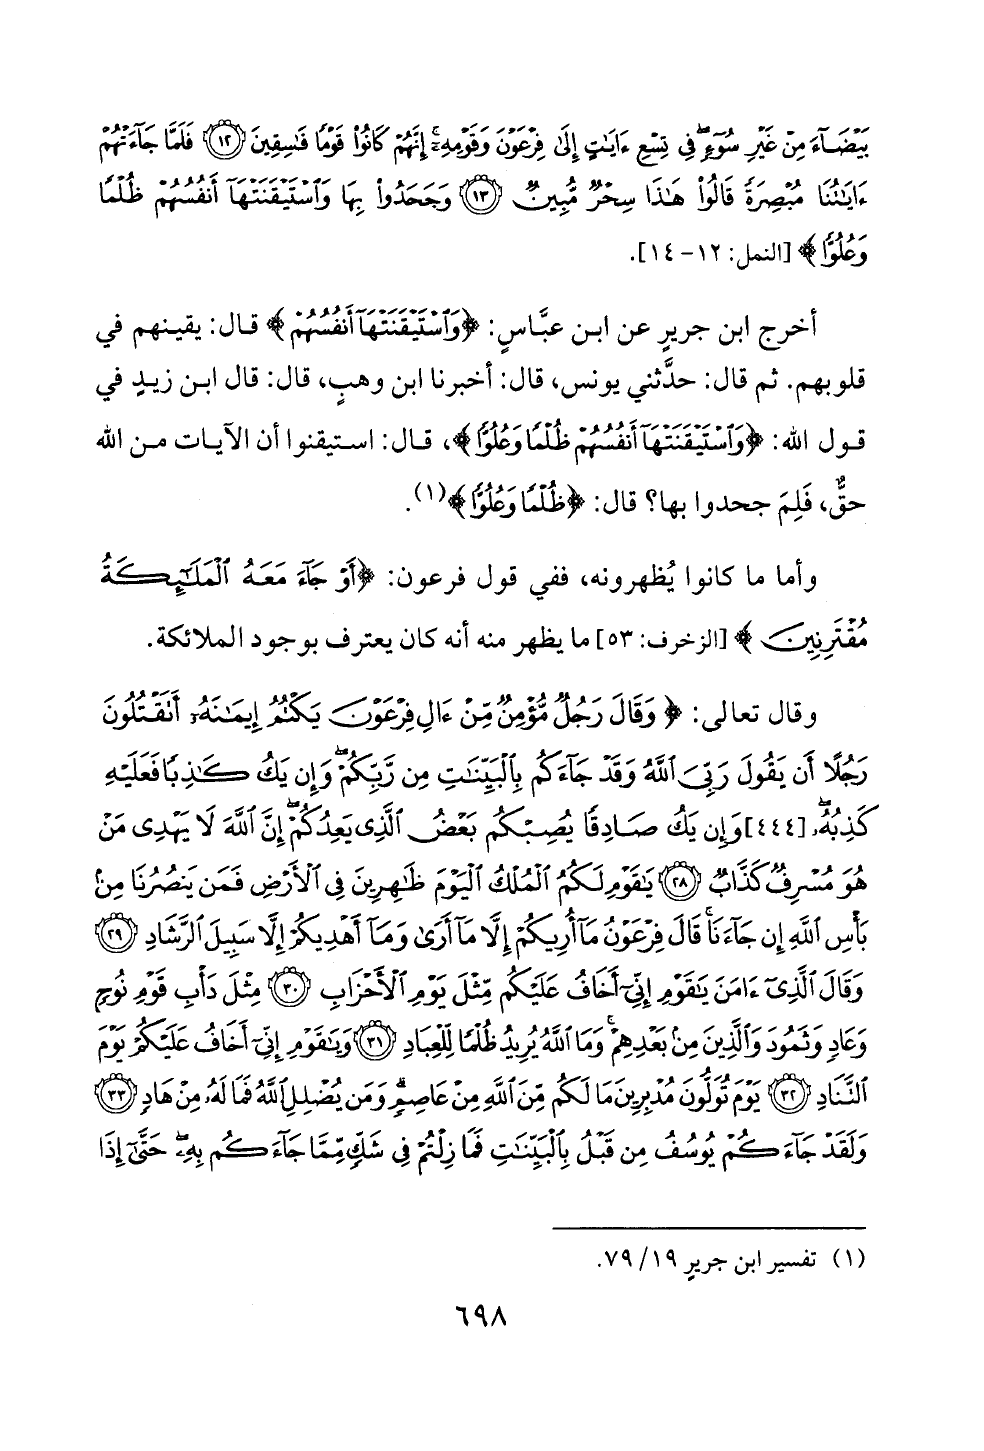 بَيْضَآءَ مِنْ غَيْرِ سُوٓءٍۖ فِى تِسْعِ ءَايَٰتٍ إِلَىٰ فِرْعَوْنَ وَقَوْمِهِۦٓۚ إِنَّهُمْ كَانُوا۟ قَوْمًا فَٰسِقِينَ ﴿١٢﴾ فَلَمَّا جَآءَتْهُمْ
ءَايَٰتُنَا مُبْصِرَةً قَالُوا۟ هَٰذَا سِحْرٌ مُّبِينٌ ﴿١٣﴾ وَجَحَدُوا۟ بِهَا وَٱسْتَيْقَنَتْهَآ أَنفُسُهُمْ ظُلْمًا
وَعُلُوًّا﴾ [النمل: ١٢-١٤].
أخرج ابن جريرٍ عن ابن عبَّاسٍ: ﴿وَٱسْتَيْقَنَتْهَآ أَنفُسُهُمْ﴾ قال: يقينهم في
قلوبهم. ثم قال: حدَّثني يونس، قال: أخبرنا ابن وهبٍ، قال: قال ابن زيدٍ في
قول الله: ﴿وَٱسْتَيْقَنَتْهَآ أَنفُسُهُمْ ظُلْمًا وَعُلُوًّا﴾، قال: استيقنوا أن الآيات من الله
حقٌّ، فَلِمَ جحدوا بها؟ قال: ﴿ظُلْمًا وَعُلُوًّا﴾(١).
وأما ما كانوا يُظهرونه، ففي قول فرعون: ﴿أَوْ جَآءَ مَعَهُ ٱلْمَلَٰٓئِكَةُ
مُقْتَرِنِينَ﴾ [الزخرف: ٥٣] ما يظهر منه أنه كان يعترف بوجود الملائكة.
وقال تعالى: ﴿وَقَالَ رَجُلٌ مُّؤْمِنٌ مِّنْ ءَالِ فِرْعَوْنَ يَكْتُمُ إِيمَٰنَهُۥٓ أَتَقْتُلُونَ
رَجُلًا أَن يَقُولَ رَبِّىَ ٱللَّهُ وَقَدْ جَآءَكُم بِٱلْبَيِّنَٰتِ مِن رَّبِّكُمْۖ وَإِن يَكُ كَٰذِبًا فَعَلَيْهِ
كَذِبُهُۥۖ [٤٤٤] وَإِن يَكُ صَادِقًا يُصِبْكُم بَعْضُ ٱلَّذِى يَعِدُكُمْۖ إِنَّ ٱللَّهَ لَا يَهْدِى مَنْ
هُوَ مُسْرِفٌ كَذَّابٌ ﴿٢٨﴾ يَٰقَوْمِ لَكُمُ ٱلْمُلْكُ ٱلْيَوْمَ ظَٰهِرِينَ فِى ٱلْأَرْضِ فَمَن يَنصُرُنَا مِنۢ
بَأْسِ ٱللَّهِ إِن جَآءَنَاۚ قَالَ فِرْعَوْنُ مَآ أُرِيكُمْ إِلَّا مَآ أَرَىٰ وَمَآ أَهْدِيكُمْ إِلَّا سَبِيلَ ٱلرَّشَادِ ﴿٢٩﴾
وَقَالَ ٱلَّذِىٓ ءَامَنَ يَٰقَوْمِ إِنِّىٓ أَخَافُ عَلَيْكُم مِّثْلَ يَوْمِ ٱلْأَحْزَابِ ﴿٣٠﴾ مِثْلَ دَأْبِ قَوْمِ نُوحٍ
وَعَادٍ وَثَمُودَ وَٱلَّذِينَ مِنۢ بَعْدِهِمْۚ وَمَا ٱللَّهُ يُرِيدُ ظُلْمًا لِّلْعِبَادِ ﴿٣١﴾ وَيَٰقَوْمِ إِنِّىٓ أَخَافُ عَلَيْكُمْ يَوْمَ
ٱلتَّنَادِ ﴿٣٢﴾ يَوْمَ تُوَلُّونَ مُدْبِرِينَ مَا لَكُم مِّنَ ٱللَّهِ مِنْ عَاصِمٍۗ وَمَن يُضْلِلِ ٱللَّهُ فَمَا لَهُۥ مِنْ هَادٍ ﴿٣٣﴾
وَلَقَدْ جَآءَكُمْ يُوسُفُ مِن قَبْلُ بِٱلْبَيِّنَٰتِ فَمَا زِلْتُمْ فِى شَكٍّ مِّمَّا جَآءَكُم بِهِۦۖ حَتَّىٰٓ إِذَا
(١) تفسير ابن جريرٍ ١٩/ ٧٩.
٦٩٨